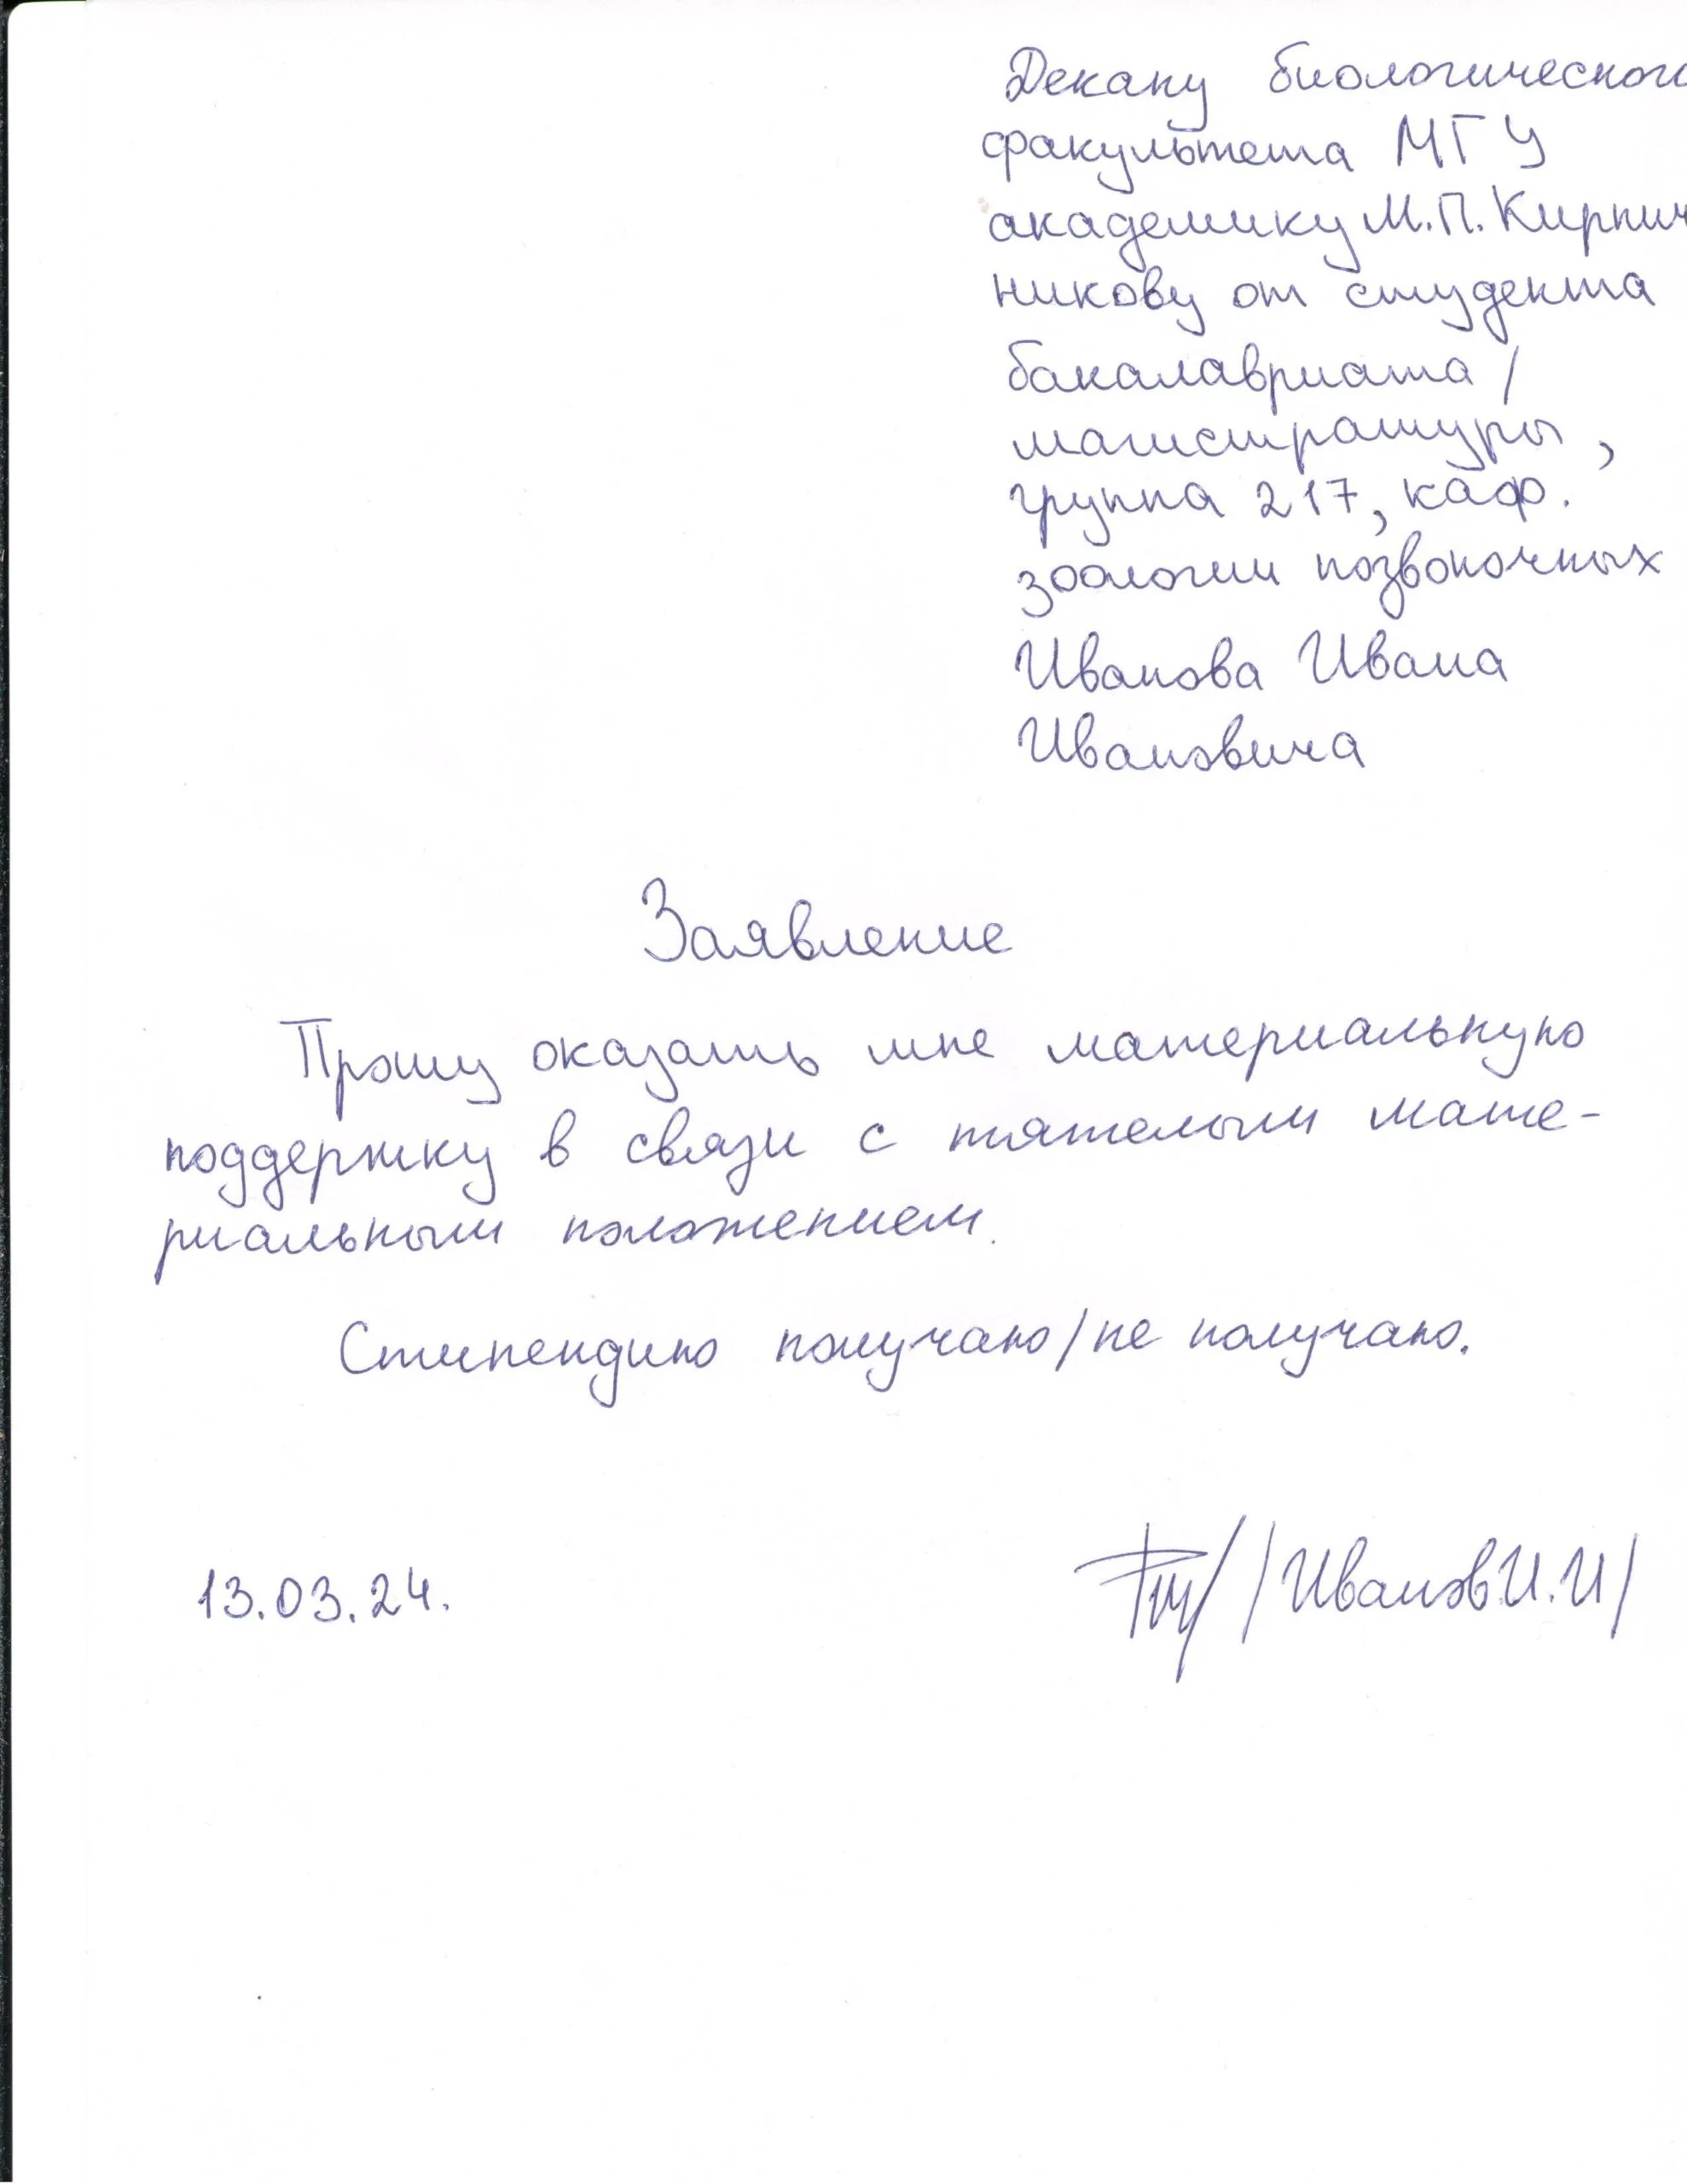 Декану биологического
факультета МГУ
академику М.П. Кирпич
никову от студента
бакалавриата /
магистратуры,
группа 217, каф.
зоологии позвоночных
Иванова Ивана
Ивановича
Заявление
Прошу оказать мне материальную
поддержку в связи с тяжелым мате-
риальным положением.
Стипендию получаю/не получаю.
13.03.24.
/Иванов И.И/